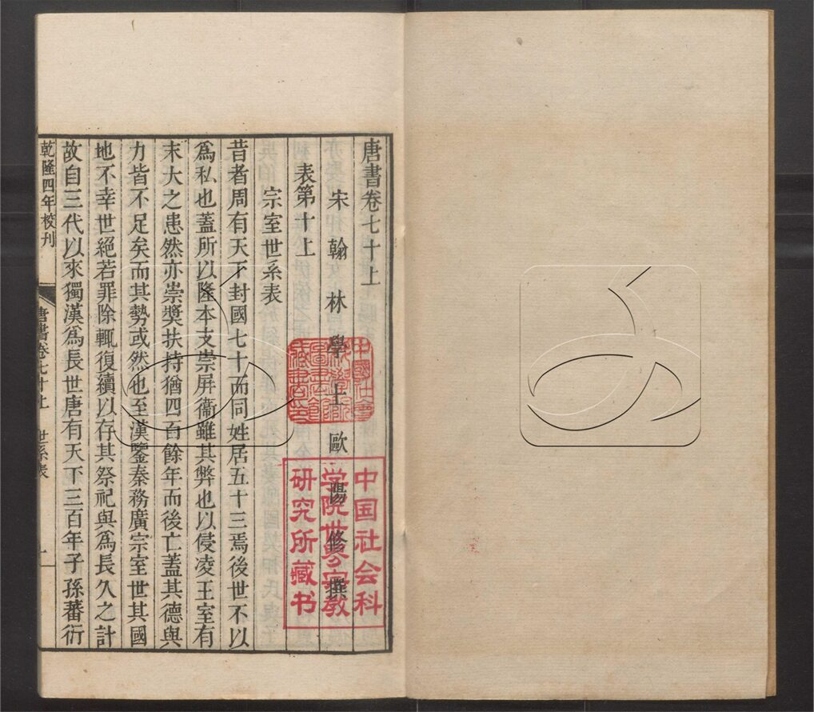 唐書卷七十上
宋翰林學士歐陽修撰
表第十上
宗室世系表
昔者周有天下封國七十而同姓居五十三焉後世不以
為私也蓋所以隆本支崇屏衞雖其弊也以侵凌王室有
末大之患然亦崇奬扶持猶四百餘年而後亡蓋其德與
力皆不足矣而其勢或然也至漢鑒秦務廣宗室世其國
地不幸世絕若罪除輒復續以存其祭祀與為長久之計
故自三代以來獨漢為長世唐有天下三百年子孫蕃衍
乾隆四年校刊
唐書卷七十上 世系表 一
中国社会科
学院世界宗教
研究所藏书